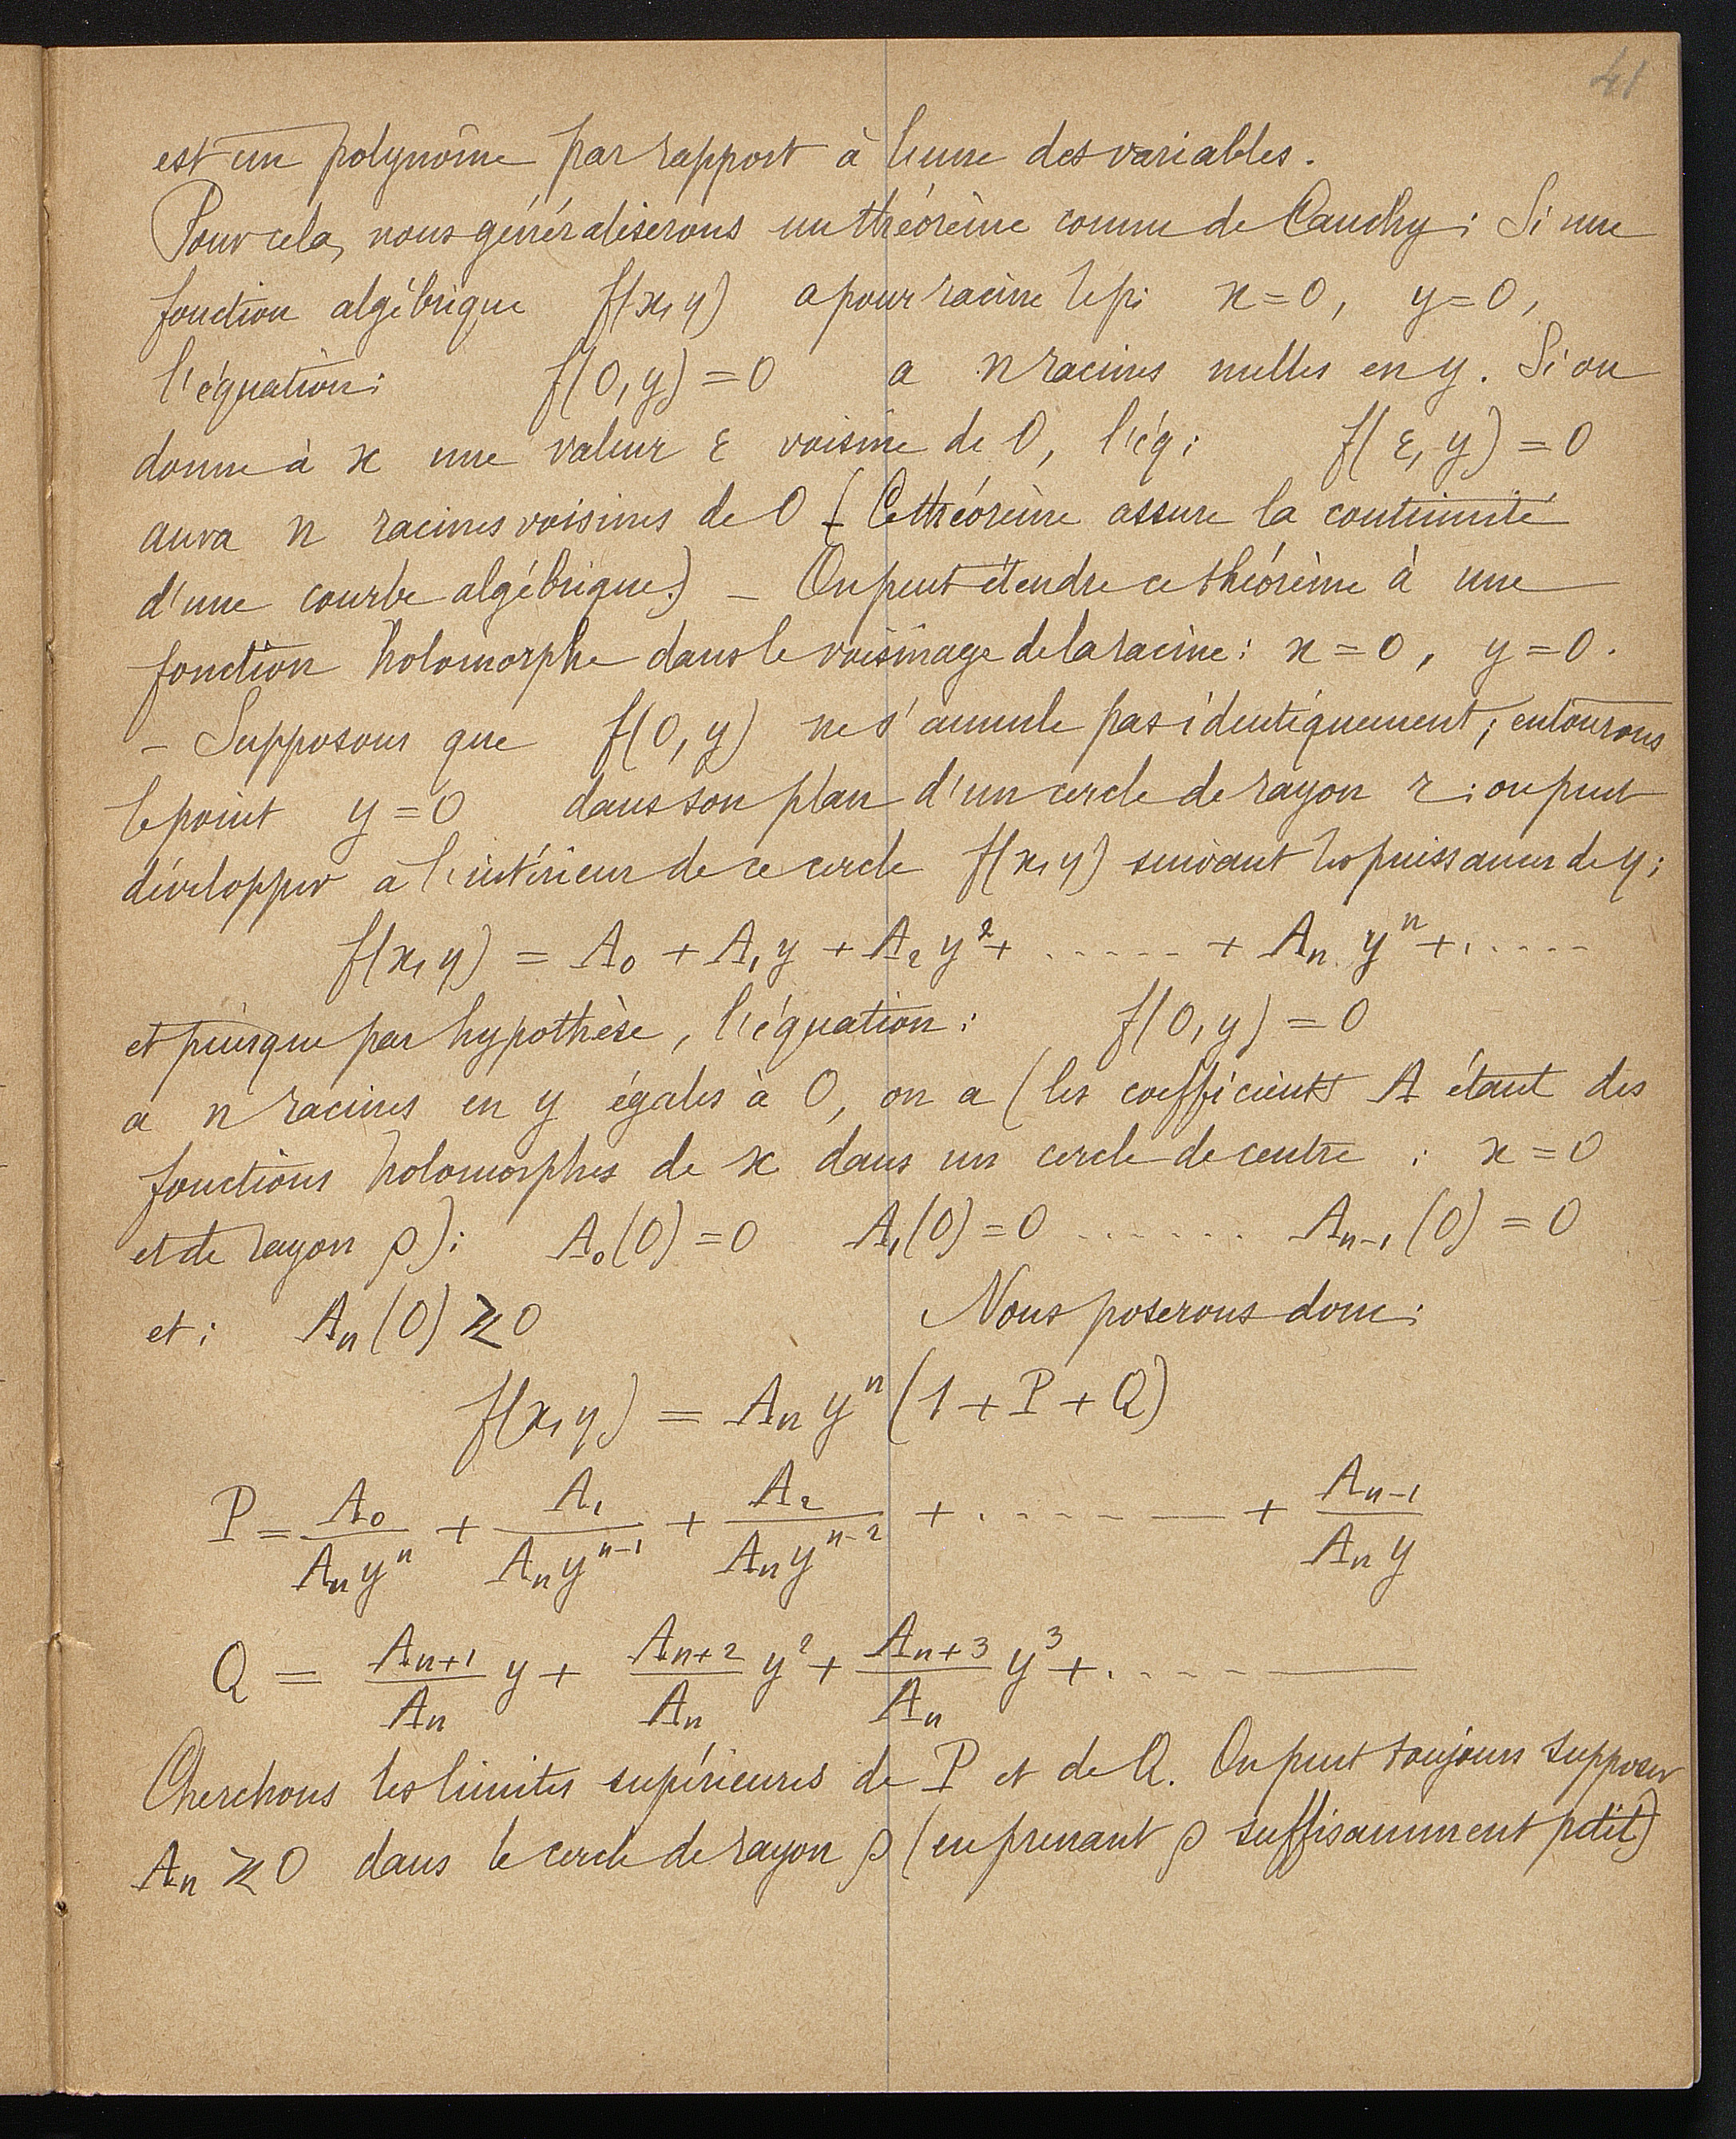 41
est un polynôme par rapport à l'une des variables.
Pour cela, nous généraliserons un théorème connu de Cauchy : Si une
fonction algébrique f(x, y) a pour racine le pt x = 0, y = 0,
l'équation : f(0, y) = 0 a n racines nulles en y. Si on
donne à x une valeur ε voisine de 0, l'éq : f(ε, y) = 0
aura n racines voisines de 0 (Ce théorème assure la continuité
d'une courbe algébrique.) – On peut étendre ce théorème à une
fonction holomorphe dans le voisinage de la racine : x = 0, y = 0.
– Supposons que f(0, y) ne s'annule pas identiquement ; entourons
le point y = 0 dans son plan d'un cercle de rayon r : on peut
développer à l'intérieur de ce cercle f(x, y) suivant les puissances de y :
f(x, y) = A₀ + A₁y + A₂y² + ...... + Aₙ yⁿ + ......
et puisque par hypothèse, l'équation : f(0, y) = 0
a n racines en y égales à 0, on a (les coefficients A étant des
fonctions holomorphes de x dans un cercle de centre : x = 0
et de rayon ρ) : A₀(0) = 0 A₁(0) = 0 ....... Aₙ₋₁(0) = 0
et : Aₙ(0) ≷ 0 Nous poserons donc :
f(x, y) = Aₙ yⁿ (1 + P + Q)
P = A₀/(Aₙyⁿ) + A₁/(Aₙyⁿ⁻¹) + A₂/(Aₙyⁿ⁻²) + ....... + Aₙ₋₁/(Aₙy)
Q = (Aₙ₊₁/Aₙ) y + (Aₙ₊₂/Aₙ) y² + (Aₙ₊₃/Aₙ) y³ + .......
Cherchons les limites supérieures de P et de Q. On peut toujours supposer
Aₙ ≷ 0 dans le cercle de rayon ρ (en prenant ρ suffisamment petit)